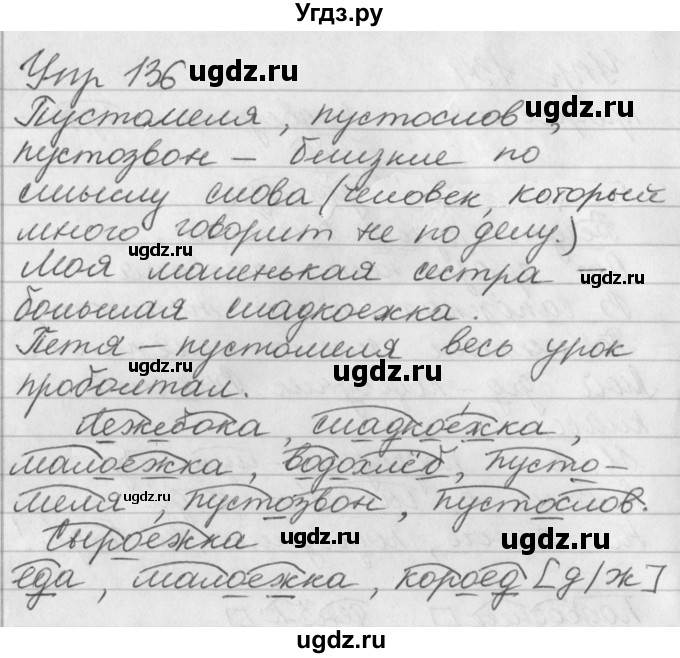 Угдз.ру
Упр 136 ugdz.ru
Пустомеля, пустослов, ugdz.ru
пустозвон – близкие по
смыслу слова (человек, который
много говорит не по делу.)
ugdz.ru
Моя маленькая сестра – ugdz.ru
большая сладкоежка.
Петя – пустомеля весь урок
проболтал. ugdz.ru
Лежебока, сладкоежка,
малоежка, водохлёб, пусто-
меля, пустозвон, пустослов.
ugdz.ru
Сыроежка ugdz.ru ugdz.ru
еда, малоежка, короед [д/ж]
ugdz.ru